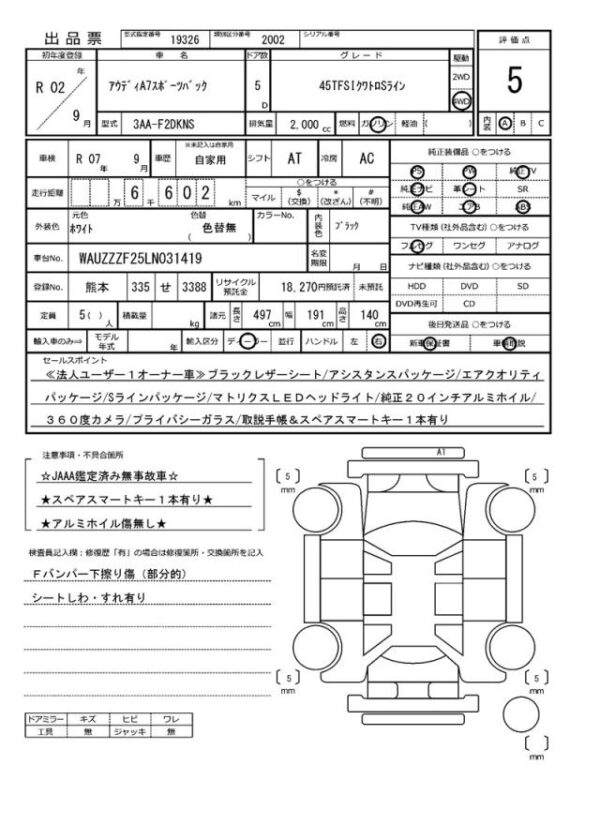 出品票 型式指定番号 19326 類別区分番号 2002 シリアル番号
評価点
初年度登録 車名 ドア数 グレード 駆動
R 02 年 9 月 アウディA7スポーツバック 5 D 45TFSIクワトロSライン 2WD 4WD
5
型式 3AA-F2DKNS 排気量 2,000 cc 燃料 ガソリン 軽油 ( ) 内装 A B C
車検 R 07 年 9 月 車歴 ※未記入は自家用 自家用 シフト AT 冷房 AC
純正装備品 ○をつける
PS PW 純正TV
純正ナビ 革シート SR
純正AW エアB ABS
走行距離 万 6 千 6 0 2 km
○をつける
マイル $ (交換) * (改ざん) # (不明)
外装色 元色 ホワイト 色替 色替無 ( ) カラーNo. 内装色 ブラック
TV種類 (社外品含む) ○をつける
フルセグ ワンセグ アナログ
車台No. WAUZZZF25LN031419 名変期限 月 日
ナビ種類 (社外品含む) ○をつける
HDD DVD SD
DVD再生可 CD
登録No. 熊本 335 せ 3388 リサイクル預託金 18,270円預託済 未預託
定員 5 ( ) 人 積載量 kg 諸元 長さ 497 cm 幅 191 cm 高さ 140 cm
後日発送品 ○をつける
輸入車のみ⇒ モデル年式 年 輸入区分 ディーラー 並行 ハンドル 左 右
新車保証書 車輌取説
セールスポイント
≪法人ユーザー1オーナー車≫ブラックレザーシート/アシスタンスパッケージ/エアクオリティ
パッケージ/Sラインパッケージ/マトリクスLEDヘッドライト/純正20インチアルミホイル/
360度カメラ/プライバシーガラス/取説手帳&スペアスマートキー1本有り
注意事項・不具合箇所
☆JAAA鑑定済み無事故車☆
★スペアスマートキー1本有り★
★アルミホイル傷無し★
検査員記入欄：修復歴「有」の場合は修復箇所・交換箇所を記入
Fバンパー下擦り傷 (部分的)
シートしわ・すれ有り
A1
5 mm
5 mm
5 mm
5 mm
mm
ドアミラー キズ ヒビ ワレ
工具 無 ジャッキ 無